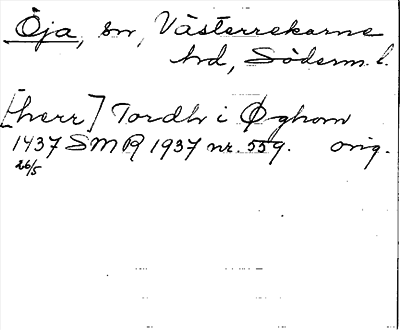 Öja, sn, Västerrekarne
hd, Söderm. l.
[herr] Tordh i Øghom
1437 SMR 1937 nr. 559. orig.
26/5